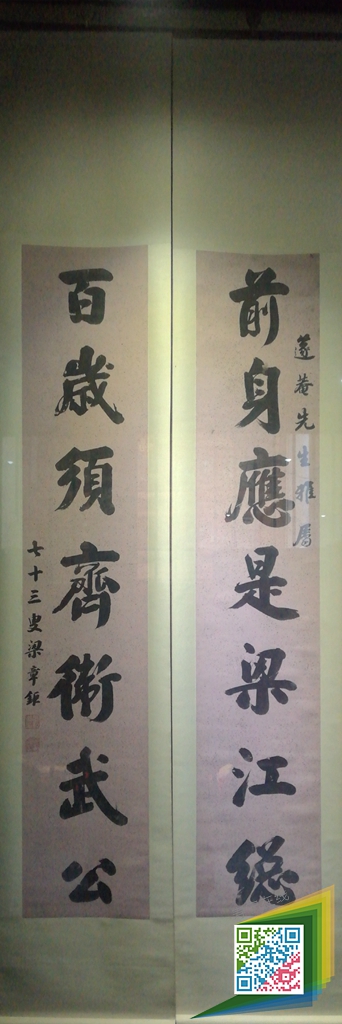 遂菴先生雅屬
前身應是梁江總
百歲須齊衛武公
七十三叟梁章鉅